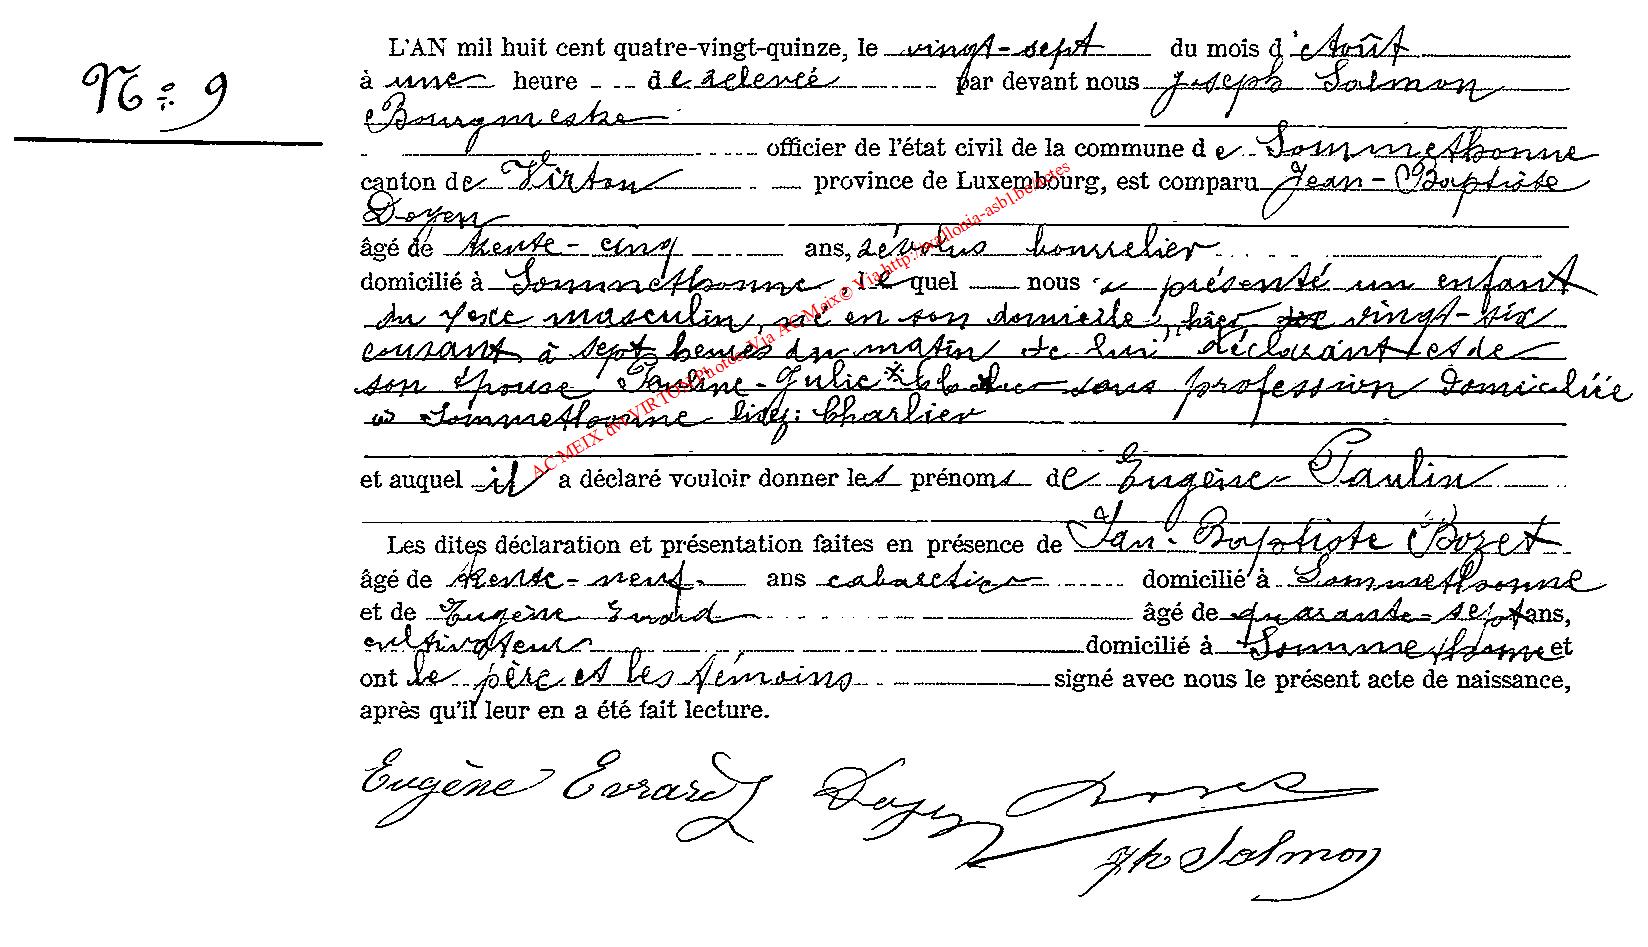 L'AN mil huit cent quatre-vingt-quinze, le vingt-sept du mois d'Août
N° 9
à une heure de relevée par devant nous Joseph Salmon
Bourgmestre
officier de l'état civil de la commune de Sommethonne
canton de Virton province de Luxembourg, est comparu Jean-Baptiste
Doyen
âgé de trente-cinq ans, révolus bourrelier
domicilié à Sommethonne, lequel nous a présenté un enfant
du sexe masculin, né en son domicile, hier, vingt-six
courant à sept heures du matin de lui déclarant et de
son épouse Pauline-Julie sans profession domiciliée
à Sommethonne lisez: Charlier
et auquel il a déclaré vouloir donner les prénoms de Eugène-Paulin
Les dites déclaration et présentation faites en présence de Jan-Baptiste Bozet
âgé de trente-neuf ans cabaretier domicilié à Sommethonne
et de Eugène Evrard âgé de quarante-sept ans,
cultivateur domicilié à Sommethonne et
ont le père et les témoins signé avec nous le présent acte de naissance,
après qu'il leur en a été fait lecture.
Eugène Evrard Doyen
Jh Salmon
AC MEIX dvt VIRTON Photos Via AC Meix © Via http://wallonia-asbl.be/notes